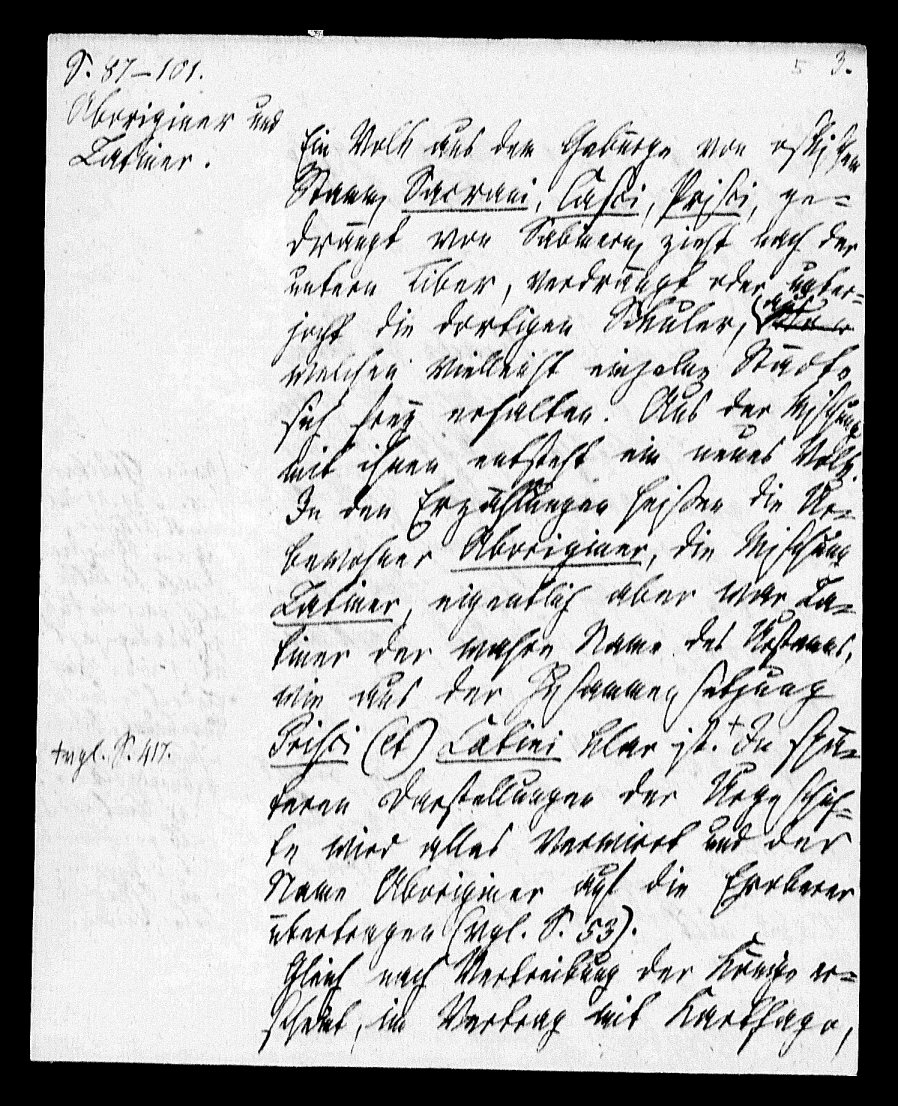 5 3.
S. 87–101.
Aboriginer und
Latiner.
Ein Volk aus dem Gebürge von oskischen
Stamm Sacrani, Casci, Prisci, ge-
drängt von Sabinern zieht nach der
untern Tiber, verdrängt oder unter-
jocht die dortigen Siculer, (aus
welchen vielleicht einzelne Städte
sich frey erhalten. Aus der Mischung
mit ihnen entsteht ein neues Volk.
In den Erzählungen heißen die Ur-
bewohner Aboriginer, die Mischung
Latiner, eigentlich aber war La-
tiner der wahre Name des Urstamms,
wie aus der Zusammensetzung
Prisci (et) Latini klar ist.+ In spä-
teren Darstellungen der Urgeschich-
te wird alles verwirrt und der
Name Aboriginer auf die Eroberer
übertragen (vgl. S. 53).
+vgl. S. 417.
Gleich nach Vertreibung der Könige er-
scheint, im Vertrag mit Karthago,